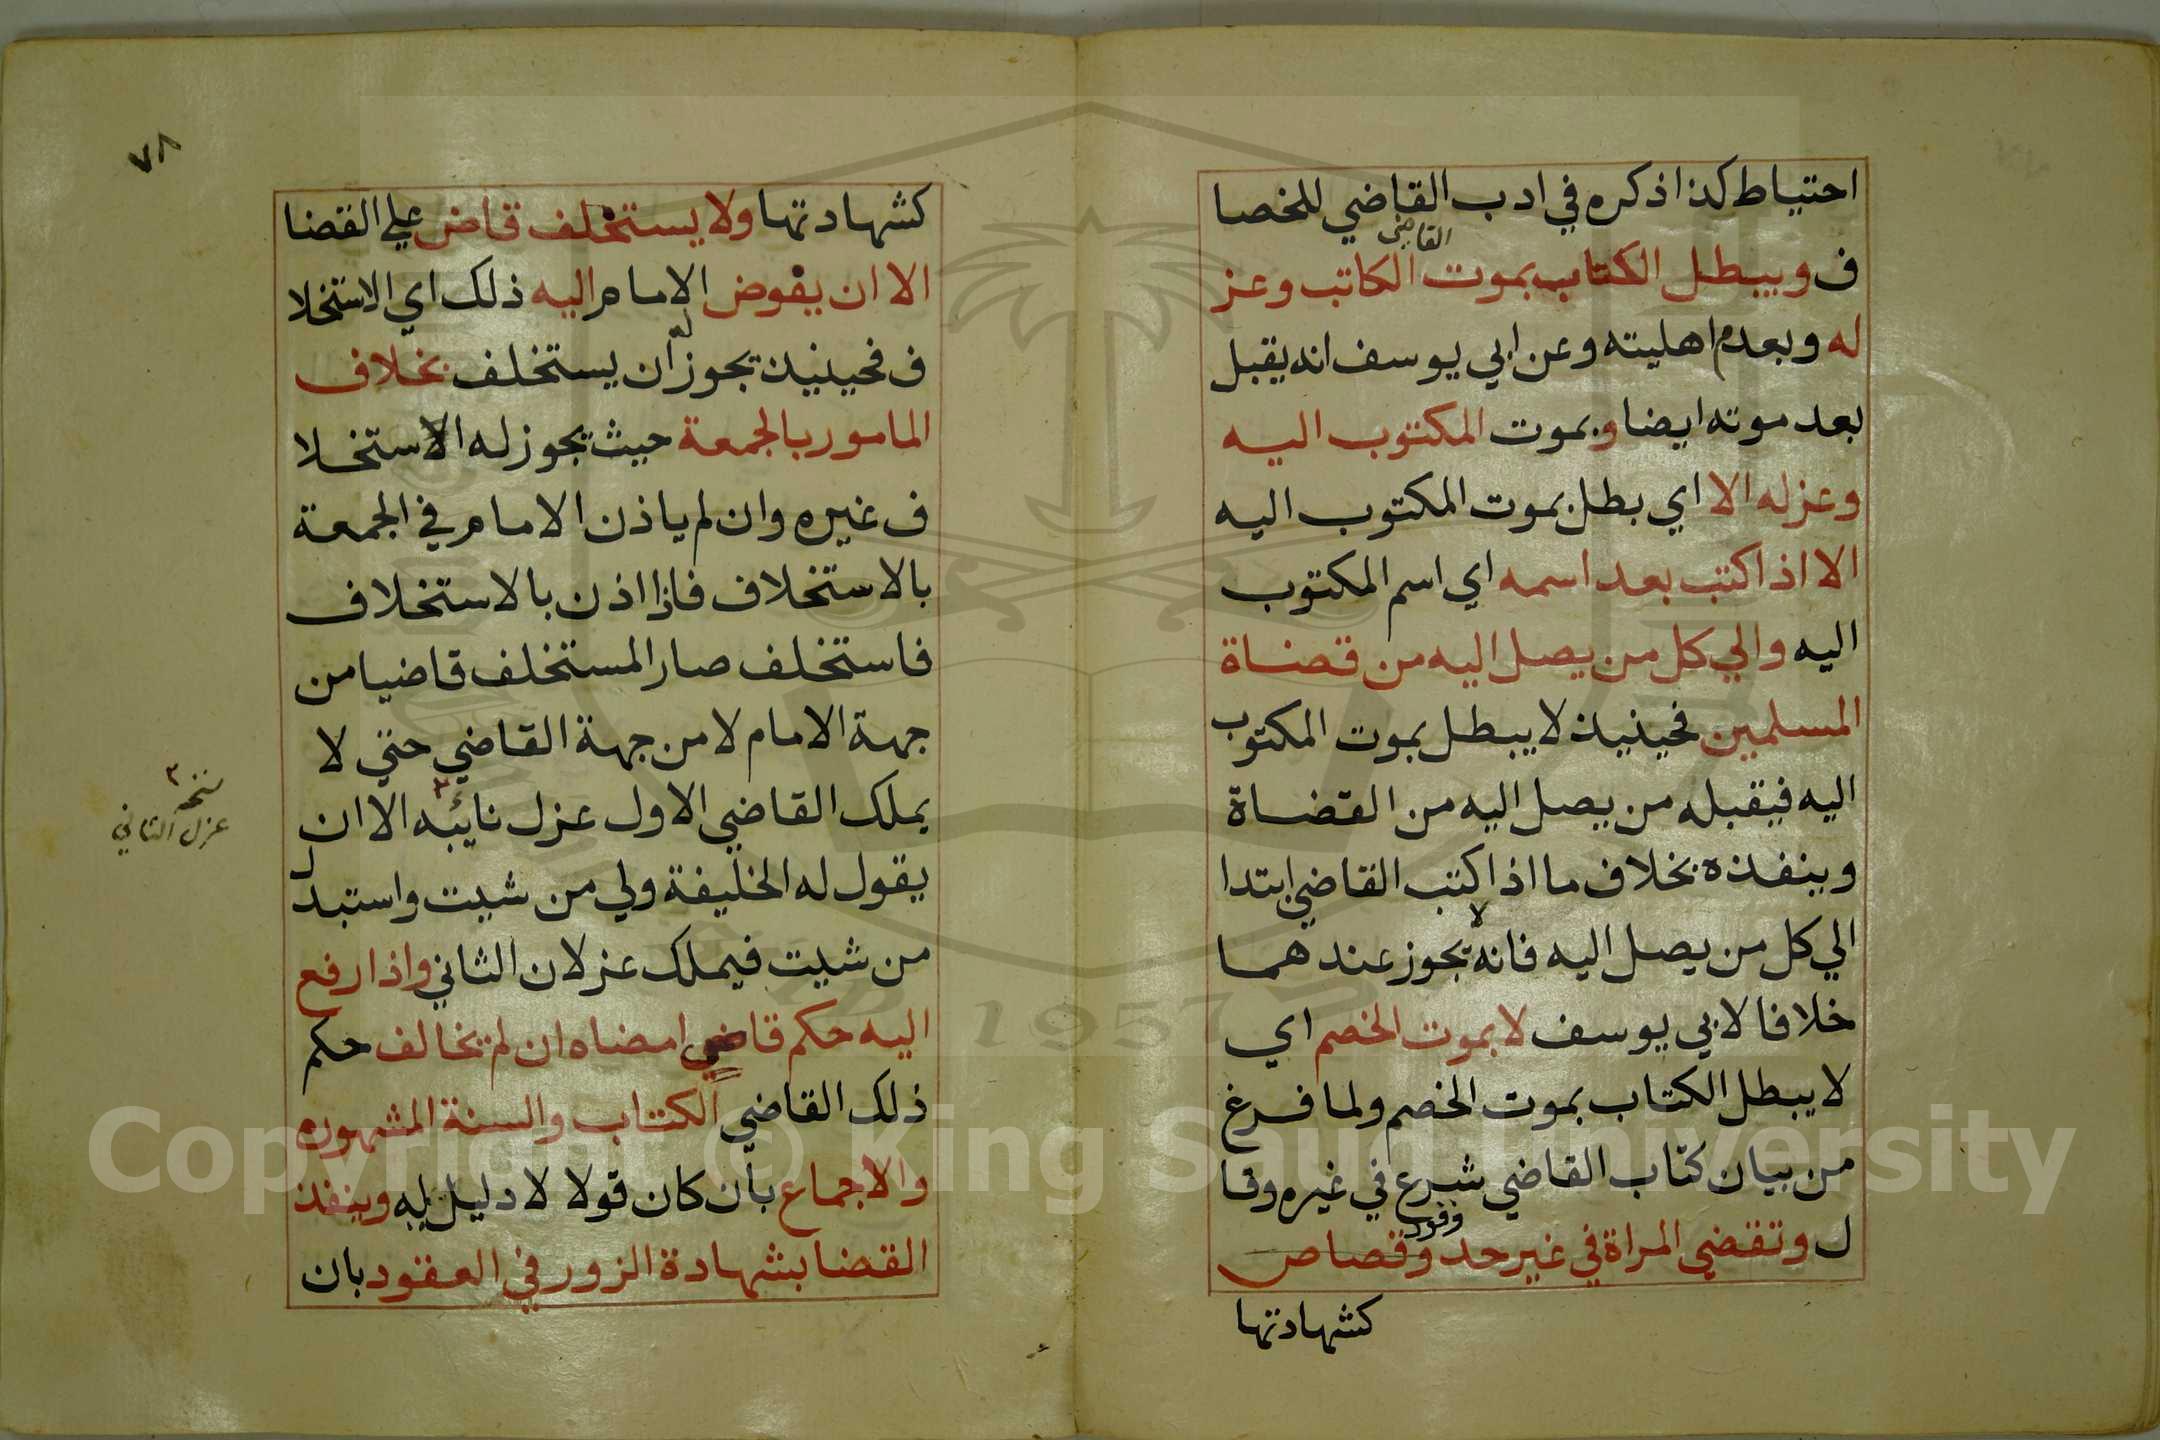 احتياط كذا ذكره في ادب القاضي للخصا
القاضي
ف ويبطل الكتاب بموت الكاتب وعز
له وبعدم اهليته وعن ابي يوسف انه يقبل
بعد موته ايضا وبموت المكتوب اليه
وعزله الا اي بطل بموت المكتوب اليه
الا اذا كتب بعد اسمه اي اسم المكتوب
اليه والي كل من يصل اليه من قضاة
المسلمين فحينيذ لا يبطل بموت المكتوب
اليه فيقبله من يصل اليه من القضاة
وينفذه بخلاف ما اذا كتب القاضي ابتدا
الي كل من يصل اليه فانه لا يجوز عندهما
خلافا لابي يوسف لا بموت الخصم اي
لا يبطل الكتاب بموت الخصم ولما فرغ
من بيان كتاب القاضي شرع في غيره وقا
ل وتقضي المراة في غير حد وقصاص
وقود
كشهادتها
٧٨
كشهادتها ولا يستخلف قاض علي القضا
الا ان يفوض الامام اليه ذلك اي الاستخلا
ف فحينيذ يجوز له ان يستخلف بخلاف
المامور بالجمعة حيث يجوز له الاستخلا
ف غيره وان لم ياذن الامام في الجمعة
بالاستخلاف فاذا اذن بالاستخلاف
فاستخلف صار المستخلف قاضيا من
جهة الامام لا من جهة القاضي حتي لا
يملك القاضي الاول عزل نائبه الا ان
يقول له الخليفة ولي من شيت واستبدل
من شيت فيملك عزلان الثاني واذا رفع
اليه حكم قاضي امضاه ان لم يخالف حكم
ذلك القاضي الكتاب والسنة المشهوره
والاجماع بان كان قولا لا دليل له وينفذ
القضا بشهادة الزور في العقود بان
نسخه ٢
عزل الثاني
1957
Copyright © King Saud University